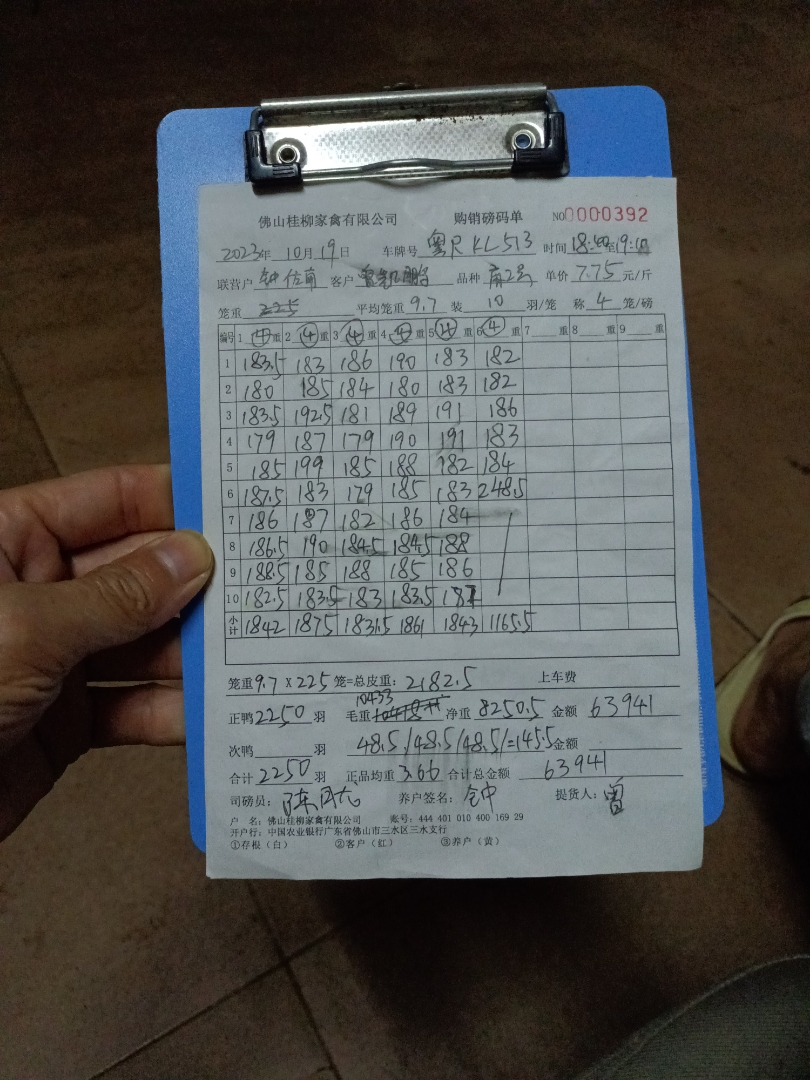 佛山桂柳家禽有限公司 购销磅码单 NO0000392
2023年 10月19日 车牌号 粤R KL513 时间18:40至19:10
联营户 客户 品种 单价 7.75 元/斤
笼重 225 平均笼重 9.7 装 10 羽/笼 称 4 笼/磅
编号 1 ④ 重 2 ④ 重 3 ④ 重 4 ④ 重 5 重 6 ④ 重 7 重 8 重 9 重
1 183.5 183 186 190 183 182
2 180 185 184 180 183 182
3 183.5 192.5 181 189 191 186
4 179 187 179 190 191 183
5 185 199 185 188 182 184
6 187.5 183 179 185 183 248.5
7 186 187 182 186 184
8 186.5 190 184.5 184.5 188
9 188.5 185 188 185 186
10 182.5 183.5 183 183.5 187
小计 1842 1875 1831.5 1861 1843 1165.5
笼重9.7 X 225 笼=总皮重: 2182.5 上车费
10433
正鸭 2250 羽 毛重 净重 8250.5 金额 63941
次鸭 羽 48.5/48.5/48.5/=145.5 金额
合计 2250 羽 正品均重 3.66 合计总金额 63941
司磅员: 养户签名: 钟 提货人: 曾
户 名: 佛山桂柳家禽有限公司 账号: 444 401 010 400 169 29
开户行: 中国农业银行广东省佛山市三水区三水支行
①存根(白) ②客户(红) ③养户(黄)